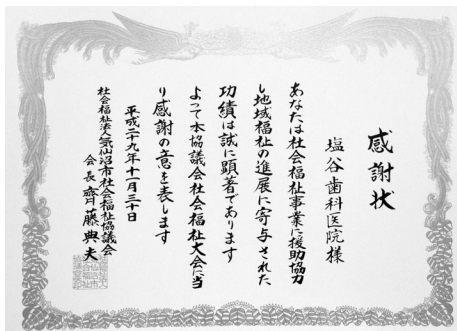 感謝状
塩谷歯科医院様
あなたは社会福祉事業に援助協力
し地域福祉の進展に寄与された
功績は誠に顕著であります
よって本協議会社会福祉大会に当
り感謝の意を表します
平成二十九年十一月三十日
社会福祉法人気仙沼市社会福祉協議会
会長齊藤典夫